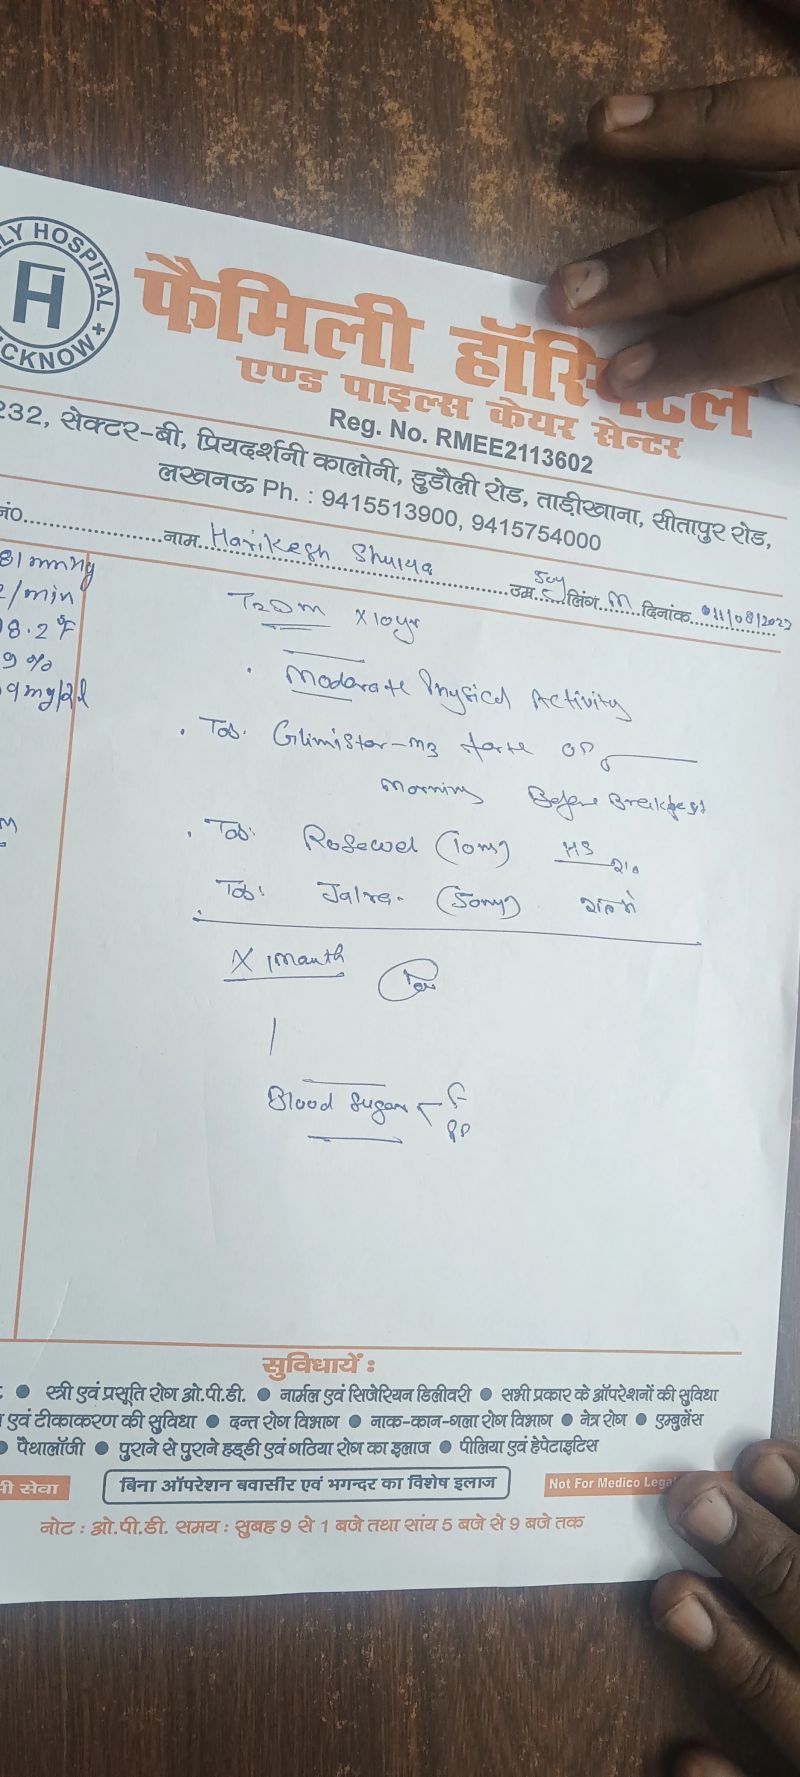 LY HOSPITAL
H
CKNOW
फैमिली
एण्ड पाइल्स केयर सेन्टर
Reg. No. RMEE2113602
232, सेक्टर-बी, प्रियदर्शनी कालोनी, डुडौली रोड, ताड़ीखाना, सीतापुर रोड,
लखनऊ Ph. : 9415513900, 9415754000
नं0.....................नाम...Harikesh.....................उम्र.......लिंग...M...दिनांक...
/min
8.2°F
9%
T2DM x 10yr
• Moderate Physical Activity
• Tab. Glimistar-M3 forte OD
Morning Before Breakfast
• Tab. (10mg) HS
Tab. (50mg)
X 1 Month
Blood Sugar F
PP
सुविधायें :
● स्त्री एवं प्रसूति रोग ओ.पी.डी. ● नार्मल एवं सिजेरियन डिलीवरी ● सभी प्रकार के ऑपरेशनों की सुविधा
एवं टीकाकरण की सुविधा ● दन्त रोग विभाग ● नाक-कान-गला रोग विभाग ● नेत्र रोग ● एम्बुलेंस
● पैथालॉजी ● पुराने से पुराने हड्डी एवं गठिया रोग का इलाज ● पीलिया एवं हेपेटाइटिस
सेवा बिना ऑपरेशन बवासीर एवं भगन्दर का विशेष इलाज Not For Medico Lega
नोट : ओ.पी.डी. समय : सुबह 9 से 1 बजे तथा सांय 5 बजे से 9 बजे तक